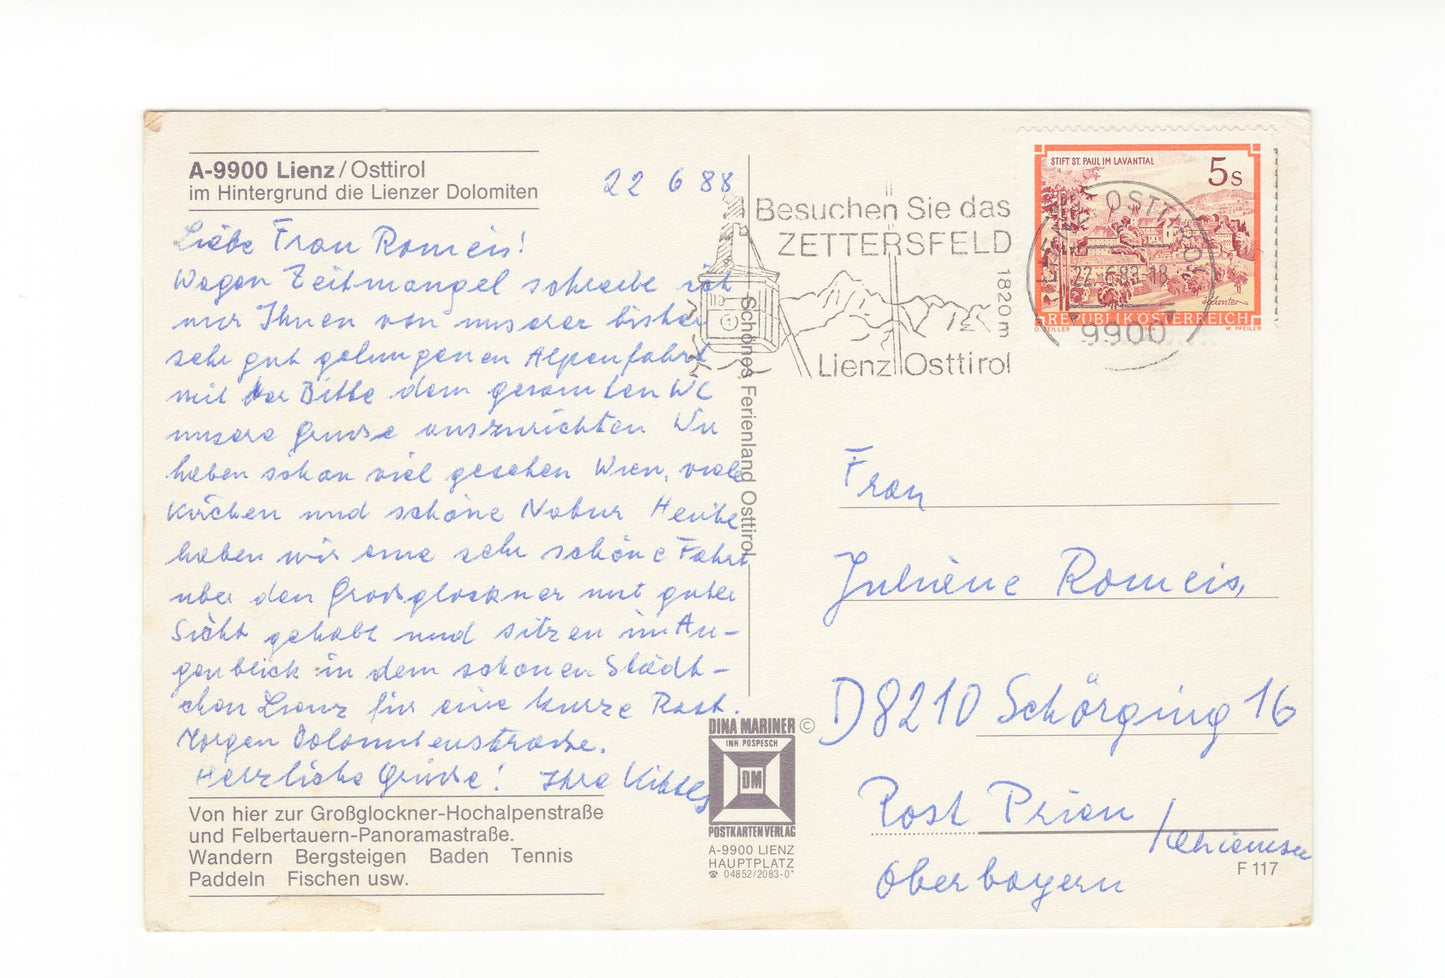 A-9900 Lienz/Osttirol
im Hintergrund die Lienzer Dolomiten
22 6 88
Liebe Frau Romeis!
Wegen Zeitmangel schreibe ich
nur Ihnen von unserer bisher
sehr gut gelungenen Alpenfahrt
mit der Bitte dem gesamten
unsere Grüsse auszurichten Wir
haben schon viel gesehen Wien, viele
Kirchen und schöne Natur Heute
haben wir eine sehr schöne Fahrt
über den Grossglockner mit guter
Sicht gehabt und sitzen im Au-
genblick in dem schönen Städt-
chen Lienz für eine kurze Rast.
Morgen Dolomitenstrasse.
Herzliche Grüsse! Ihre
Von hier zur Großglockner-Hochalpenstraße
und Felbertauern-Panoramastraße.
Wandern Bergsteigen Baden Tennis
Paddeln Fischen usw.
Schönes Ferienland Osttirol
DINA MARINER ©
INH POSPESCH
DM
POSTKARTENVERLAG
A-9900 LIENZ
HAUPTPLATZ
☎ 04852/2083-0*
Besuchen Sie das
ZETTERSFELD
1820m
Lienz Osttirol
STIFT ST. PAUL IM LAVANTTAL
5s
REPUBLIK ÖSTERREICH
W. PFEILER
OSTTIROL
9900
Frau
Juliane Romeis,
D8210 Schörging 16
Post Prien
/Chiemsee
Oberbayern
F 117